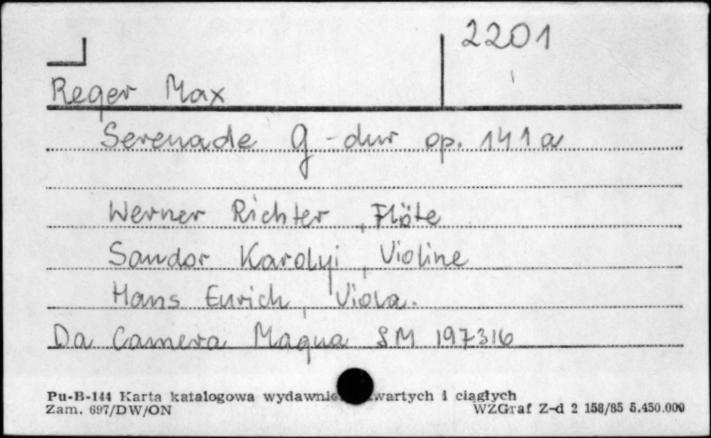 2201
Reger Max
Serenade G-dur op. 141a
Werner Richter, Flöte
Sandor Karolyi, Violine
Hans Eurich, Viola.
Da Camera Magna SM 197316
Pu-B-144 Karta katalogowa wydawnic wartych i ciągłych
Zam. 697/DW/ON WZGraf Z-d 2 158/85 5.450.000